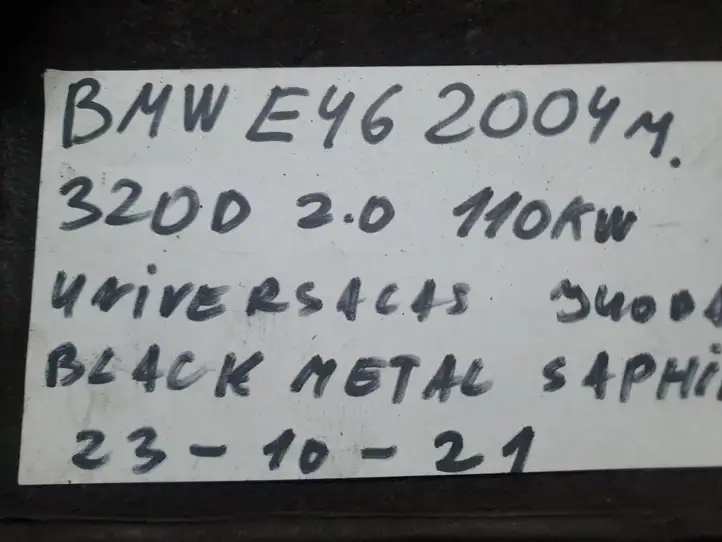 BMW E46 2004 M.
320D 2.0 110KW
UNIVERSALAS JUODA
BLACK METAL SAPHI
23-10-21